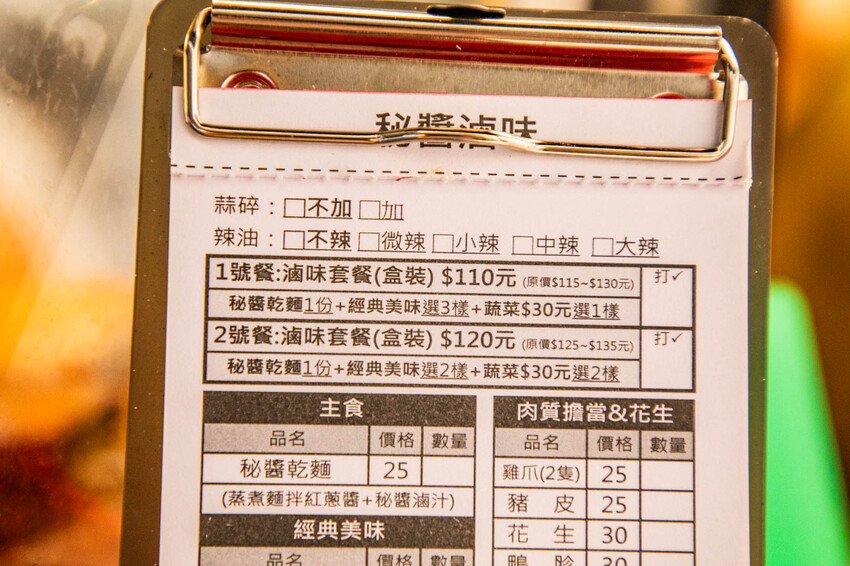 秘醬滷味
蒜碎：□不加 □加
辣油：□不辣 □微辣 □小辣 □中辣 □大辣
1號餐:滷味套餐(盒裝) $110元 (原價$115~$130元) 打✓
秘醬乾麵1份+經典美味選3樣+蔬菜$30元選1樣
2號餐:滷味套餐(盒裝) $120元 (原價$125~$135元) 打✓
秘醬乾麵1份+經典美味選2樣+蔬菜$30元選2樣
主食
品名 價格 數量
秘醬乾麵 25
(蒸煮麵拌紅蔥醬+秘醬滷汁)
經典美味
品名 價格 數量
肉質擔當&花生
品名 價格 數量
雞爪(2隻) 25
豬皮 25
花生 30
鴨胗 30